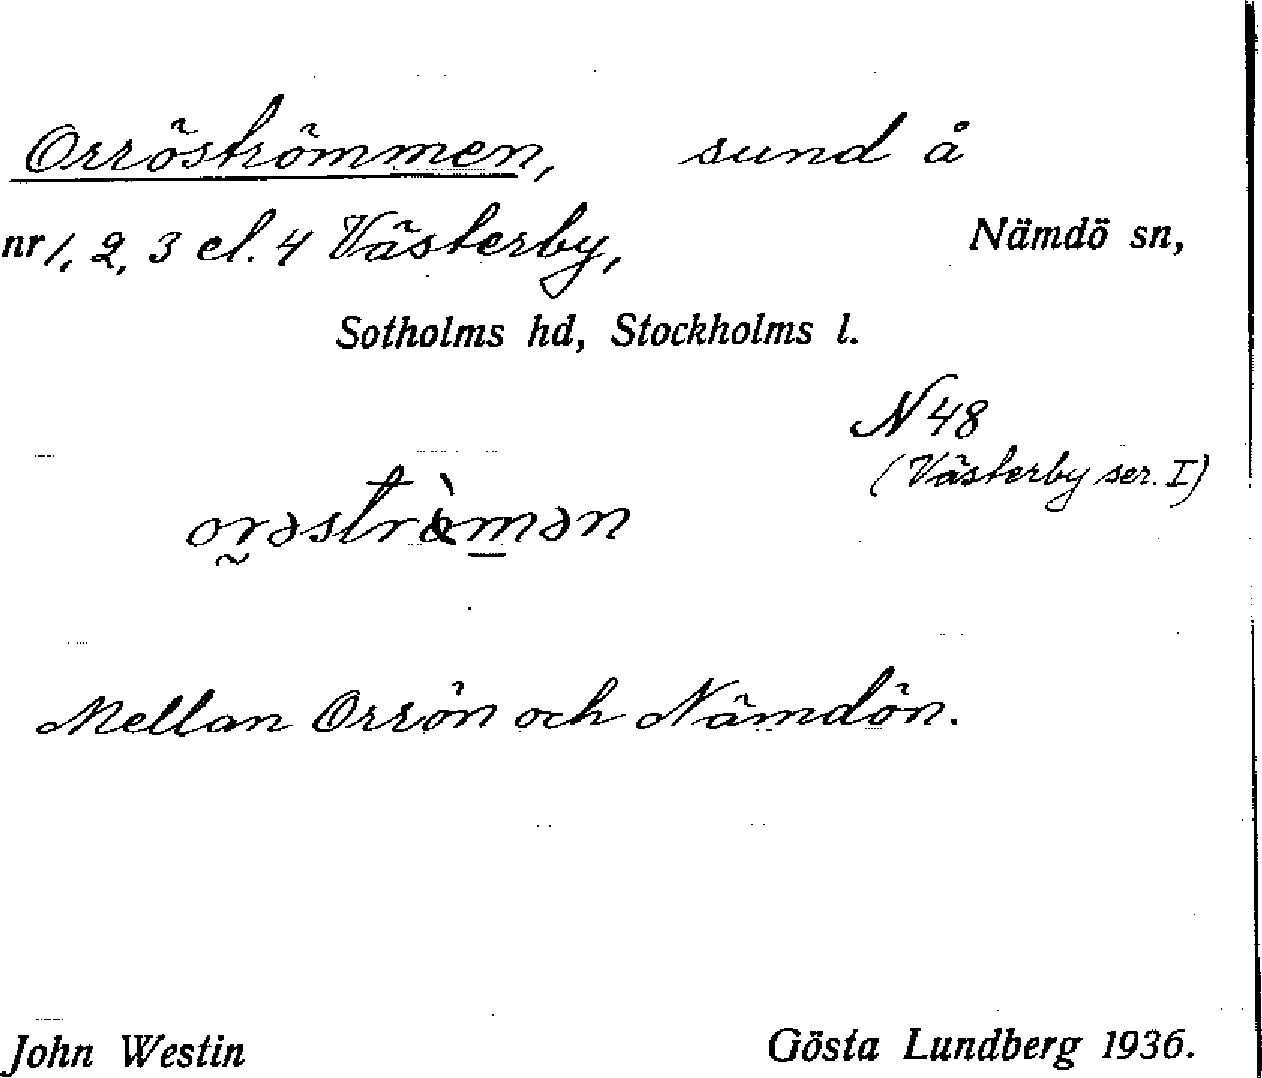 Orröströmmen, sund å
nr 1, 2, 3 el. 4 Västerby, Nämdö sn,
Sotholms hd, Stockholms l.
N 48
(Västerby ser. I)
Mellan Orrön och Nämdön.
John Westin Gösta Lundberg 1936.